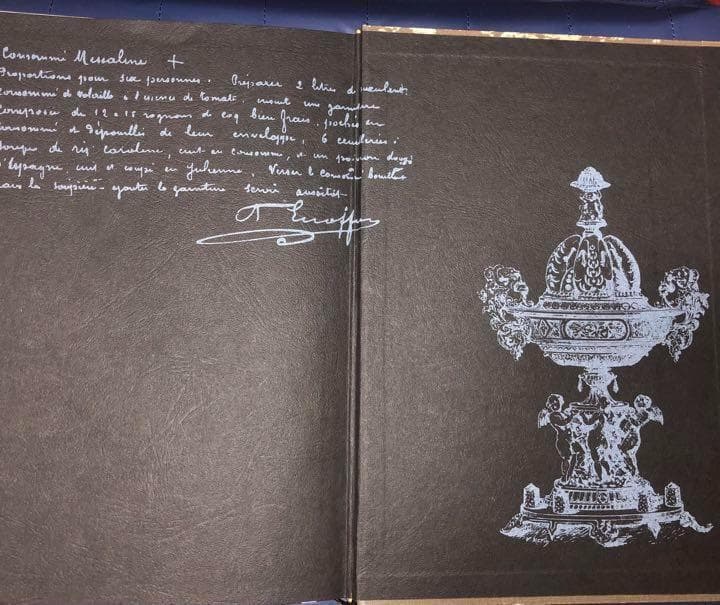 Consommé Messaline +
Proportions pour six personnes. Préparer 2 litres d'excellent
consommé de volaille à l'essence de tomate, avec une garniture
composée de 12 à 15 rognons de coq bien frais, pochés en
consommé et dépouillés de leur enveloppe, 6 cuillerées
soupe de riz Caroline, cuit en consommé, et un poivron doux
d'Espagne, cuit et coupé en Julienne. Verser le consommé bouillant
dans la soupière - ajouter la garniture servir aussitôt
A. Escoffier